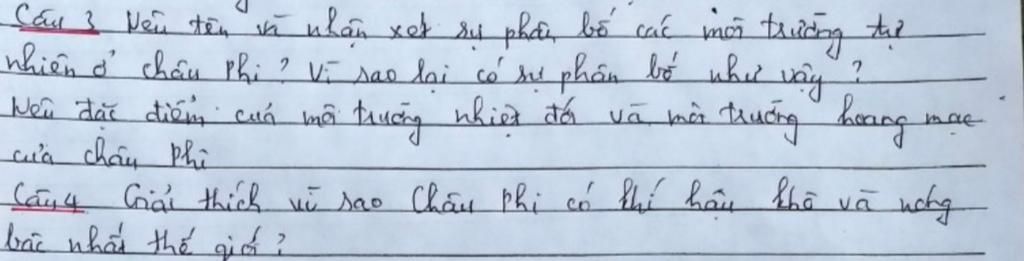 Câu 3 Nêu tên và nhận xét sự phân bố các môi trường tự
nhiên ở châu Phi? Vì sao lại có sự phân bố như vậy?
Nêu đặc điểm của môi trường nhiệt đới và môi trường hoang mạc
của châu Phi
Câu 4 Giải thích vì sao Châu Phi có khí hậu khô và nóng
bậc nhất thế giới?